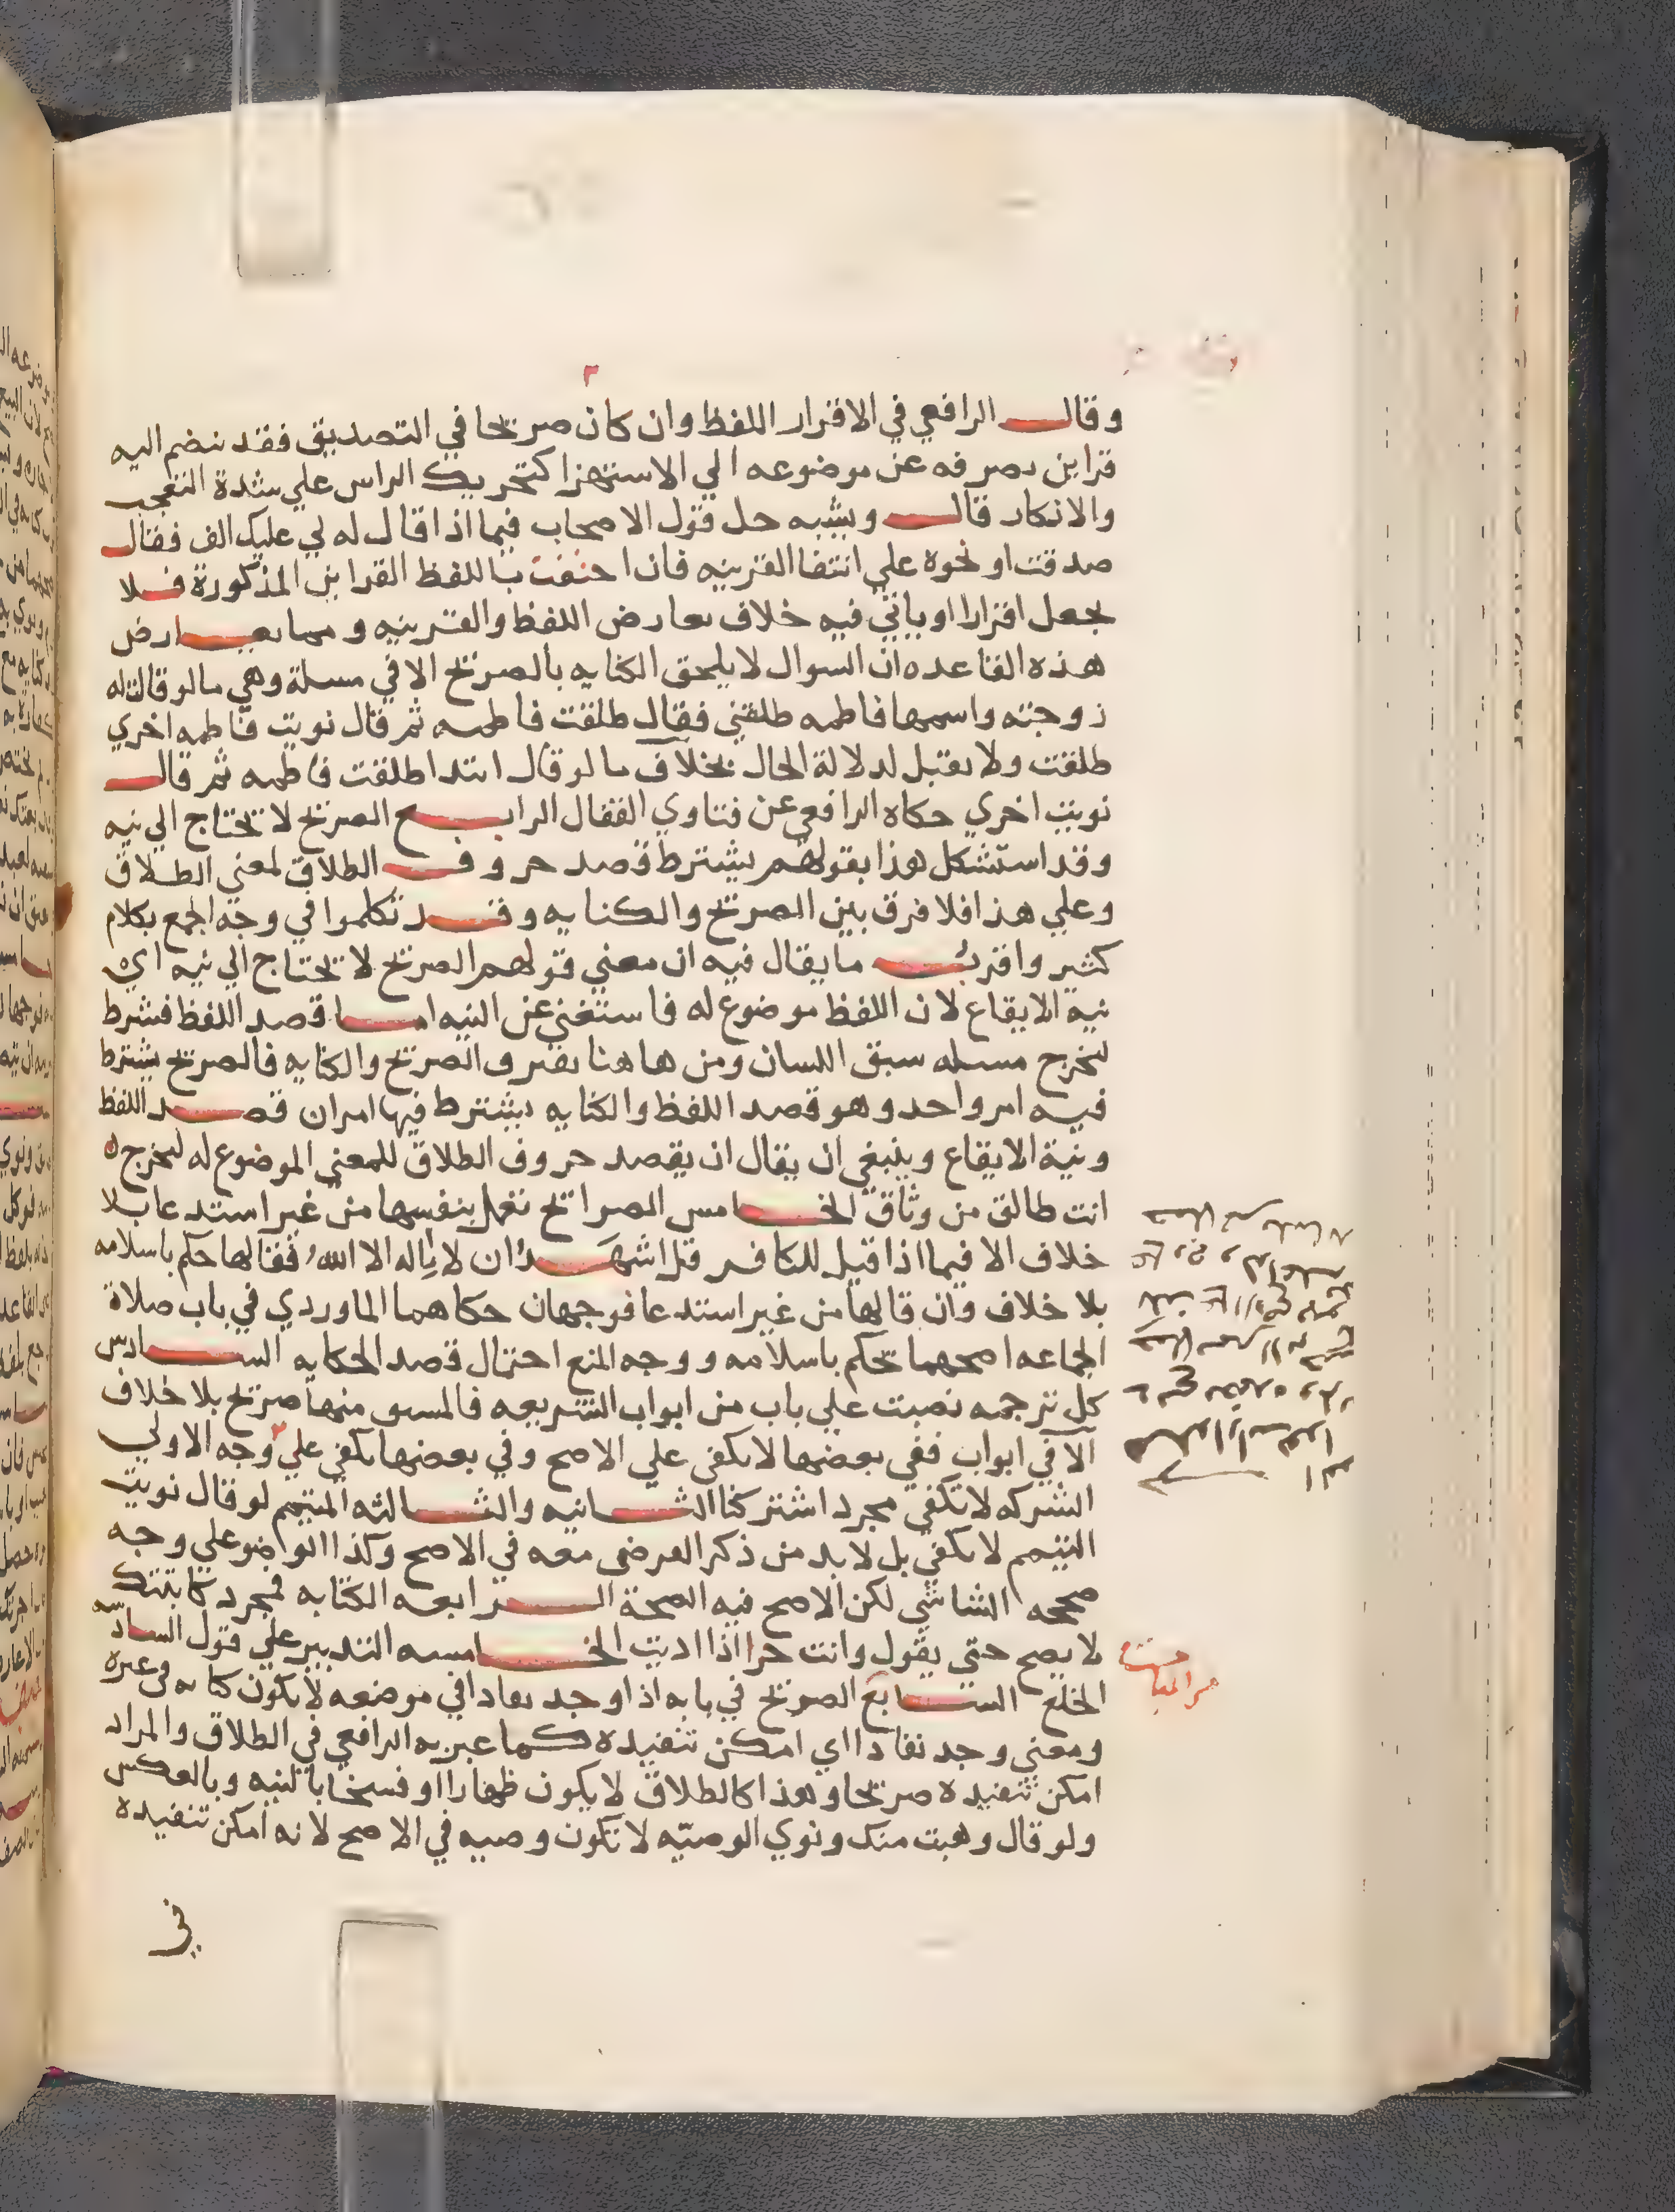 وقال الرافعي في الاقرار اللفظ وان كان صريحا في التصديق فقد ينضم اليه
قراين تصرفه عن موضوعه الي الاستهزا كتحريك الراس علي شدة التعجب
والانكار قال ويشبه حل قول الاصحاب فيما اذا قال له لي عليك الف فقال
صدقت او نحوه علي انتفا القرينه فان احتفت باللفظ القراين المذكورة فلا
يجعل اقرارا او ياتي فيه خلاف تعارض اللفظ والقرينه ومما يعارض
هذه القاعده ان السوال لا يلحق الكنايه بالصريح الا في مسلة وهي ما لو قالت له
زوجته واسمها فاطمه طلقني فقال طلقت فاطمه ثم قال نويت فاطمه اخري
طلقت ولا يقبل لدلالة الحال بخلاف ما لو قال ابتدا طلقت فاطمه ثم قال
نويت اخري حكاه الرافعي عن فتاوي القفال الرابع الصريح لا يحتاج الي نيه
وقد استشكل هذا بقولهم يشترط قصد حروف الطلاق لمعني الطلاق
وعلي هذا فلا فرق بين الصريح والكنايه وقد تكلموا في وجه الجمع بكلام
كثير واقرب ما يقال فيه ان معني قولهم الصريح لا يحتاج الي نيه اي
نية الايقاع لان اللفظ موضوع له فاستغني عن النيه اما قصد اللفظ فشرط
لتخرج مسله سبق اللسان ومن هاهنا يفترق الصريح والكنايه فالصريح يشترط
فيه امر واحد وهو قصد اللفظ والكنايه يشترط فيها امران قصد اللفظ
ونية الايقاع وينبغي ان يقال ان يقصد حروف الطلاق للمعني الموضوع له ليخرج
انت طالق من وثاق الخامس الصرايح تعمل بنفسها من غير استدعا بلا
خلاف الا فيما اذا قيل للكافر قل اشهد ان لا اله الا الله فقالها حكم باسلامه
بلا خلاف وان قالها من غير استدعا فوجهان حكاهما الماوردي في باب صلاة
الجماعه اصحهما تحكم باسلامه ووجه المنع احتمال قصد الحكايه السادس
كل ترجمه نصبت علي باب من ابواب الشريعه فالمشتق منها صريح بلا خلاف
الا في ابواب ففي بعضها لا يكفي علي الاصح وفي بعضها يكفي علي وجه الاولي
الشركه لا تكفي مجرد اشتركنا الثانيه والثالثه المتيمم لو قال نويت
التيمم لا يكفي بل لا بد من ذكر الفرض معه في الاصح وكذا الوضو علي وجه
صححه الشاشي لكن الاصح فيه الصحة الرابعه الكتابه فمجرد كاتبتك
لا يصح حتي يقول وانت حر اذا اديت الخامسه التدبير علي قول السادسه
الخلع السابع الصريح في بابه اذا وجد نفاذا في موضعه لا يكون كنايه في غيره
ومعني وجد نفاذا اي امكن تنفيذه كما عبر به الرافعي في الطلاق والمراد
امكن تنفيذه صريحا وهذا كالطلاق لا يكون ظهارا او فسخا بالنيه وبالعكس
ولو قال وهبت منك ونوي الوصيه لا تكون وصيه في الاصح لانه امكن تنفيذه
في